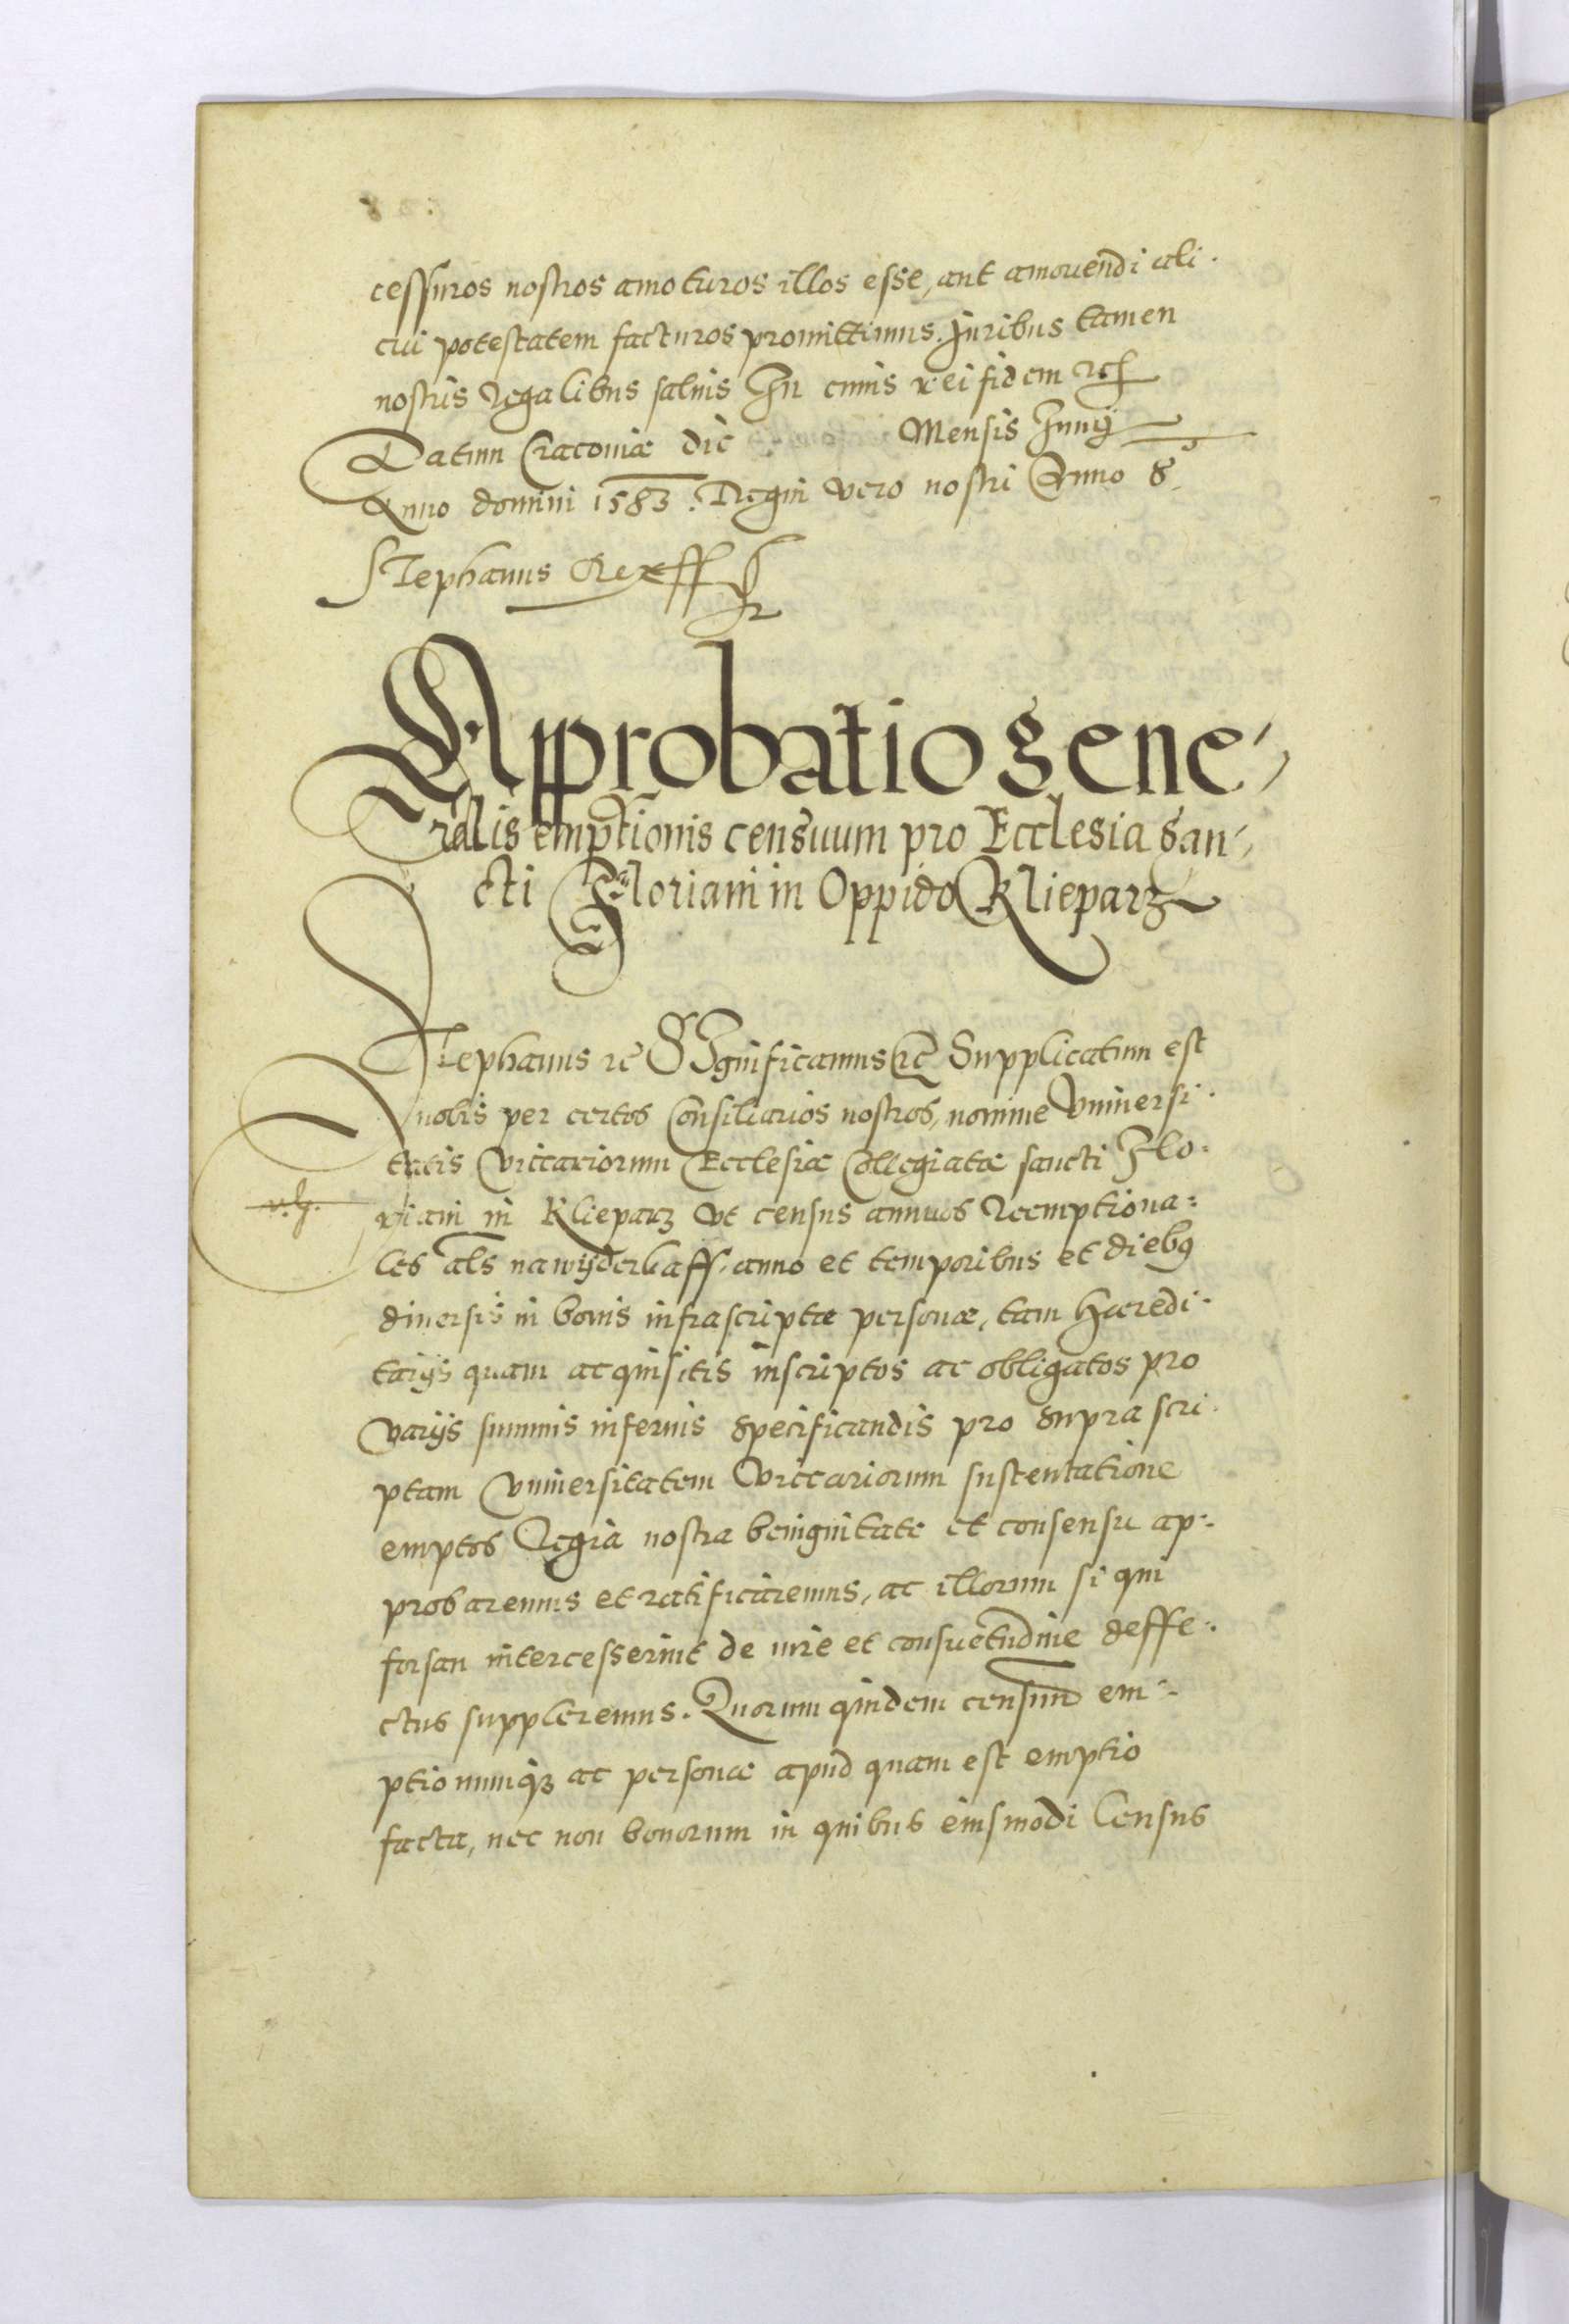 cessuros nostros amoturos illos esse, aut amouendi ali-
cui potestatem facturos promittimus. Iuribus tamen
nostris Regalibus saluis In cuius rei fidem etc
Datum Cracouiæ die Mensis Iunij
Anno domini 1583. Regni vero nostri Anno 8.
Stephanus Rex ff
Approbatio gene-
ralis emptionis censuum pro Ecclesia San-
cti Floriani in Oppido Klieparz
Stephanus etc SIgnificamus etc Supplicatum est
nobis per certos Consiliarios nostros, nomine Vniuersi-
tatis Viccariorum Ecclesiæ Collegiatæ sancti Flo-
riani in Klieparz vt census annuos Reemptiona-
les als na wyderkaff, anno et temporibus et diebus
diuersis in bonis infrascriptæ personæ, tam hæredi-
tarijs quam acquisitis inscriptos ac obligatos pro
varijs summis infernis specificandis pro suprascri-
ptam Vniuersitatem Viccariorum sustentatione
emptos Regia nostra benignitate et consensu ap-
probaremus et ratificaremus, ac illorum si qui
forsan intercesserint de iure et consuetudine deffe-
ctus suppleremus. Quorum quidem censuum em-
ptionumq3 ac personæ apud quam est emptio
facta, nec non bonorum in quibus eiusmodi Census